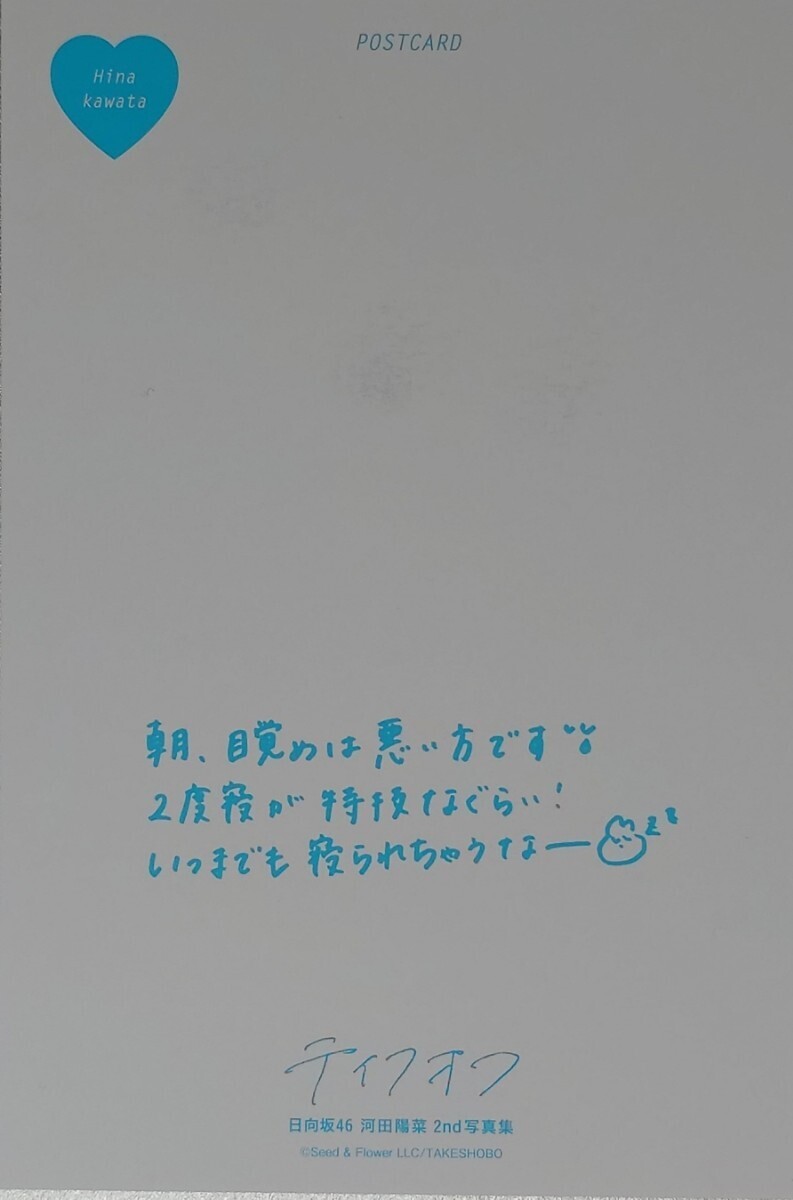 POSTCARD
Hina
kawata
朝、目覚めは悪い方です
2度寝が特技なぐらい!
いつまでも寝られちゃうなー zz
テイクオフ
日向坂46 河田陽菜 2nd写真集
©Seed & Flower LLC/TAKESHOBO